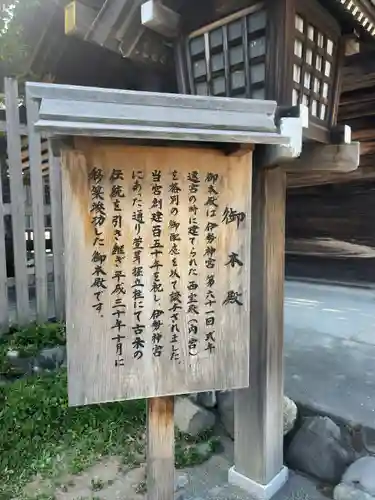 御本殿
御本殿は伊勢神宮第六十一回式年
遷宮の時に建てられた西宝殿(内宮)
を格別の御配慮を以て譲与されました。
当宮創建百五十年を記し、伊勢神宮
にあた通り萱葺掘立柱にて古来の
伝統を引き継ぎ平成三十年十月に
移築竣功した御本殿です。